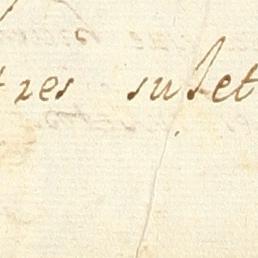 tres sujet